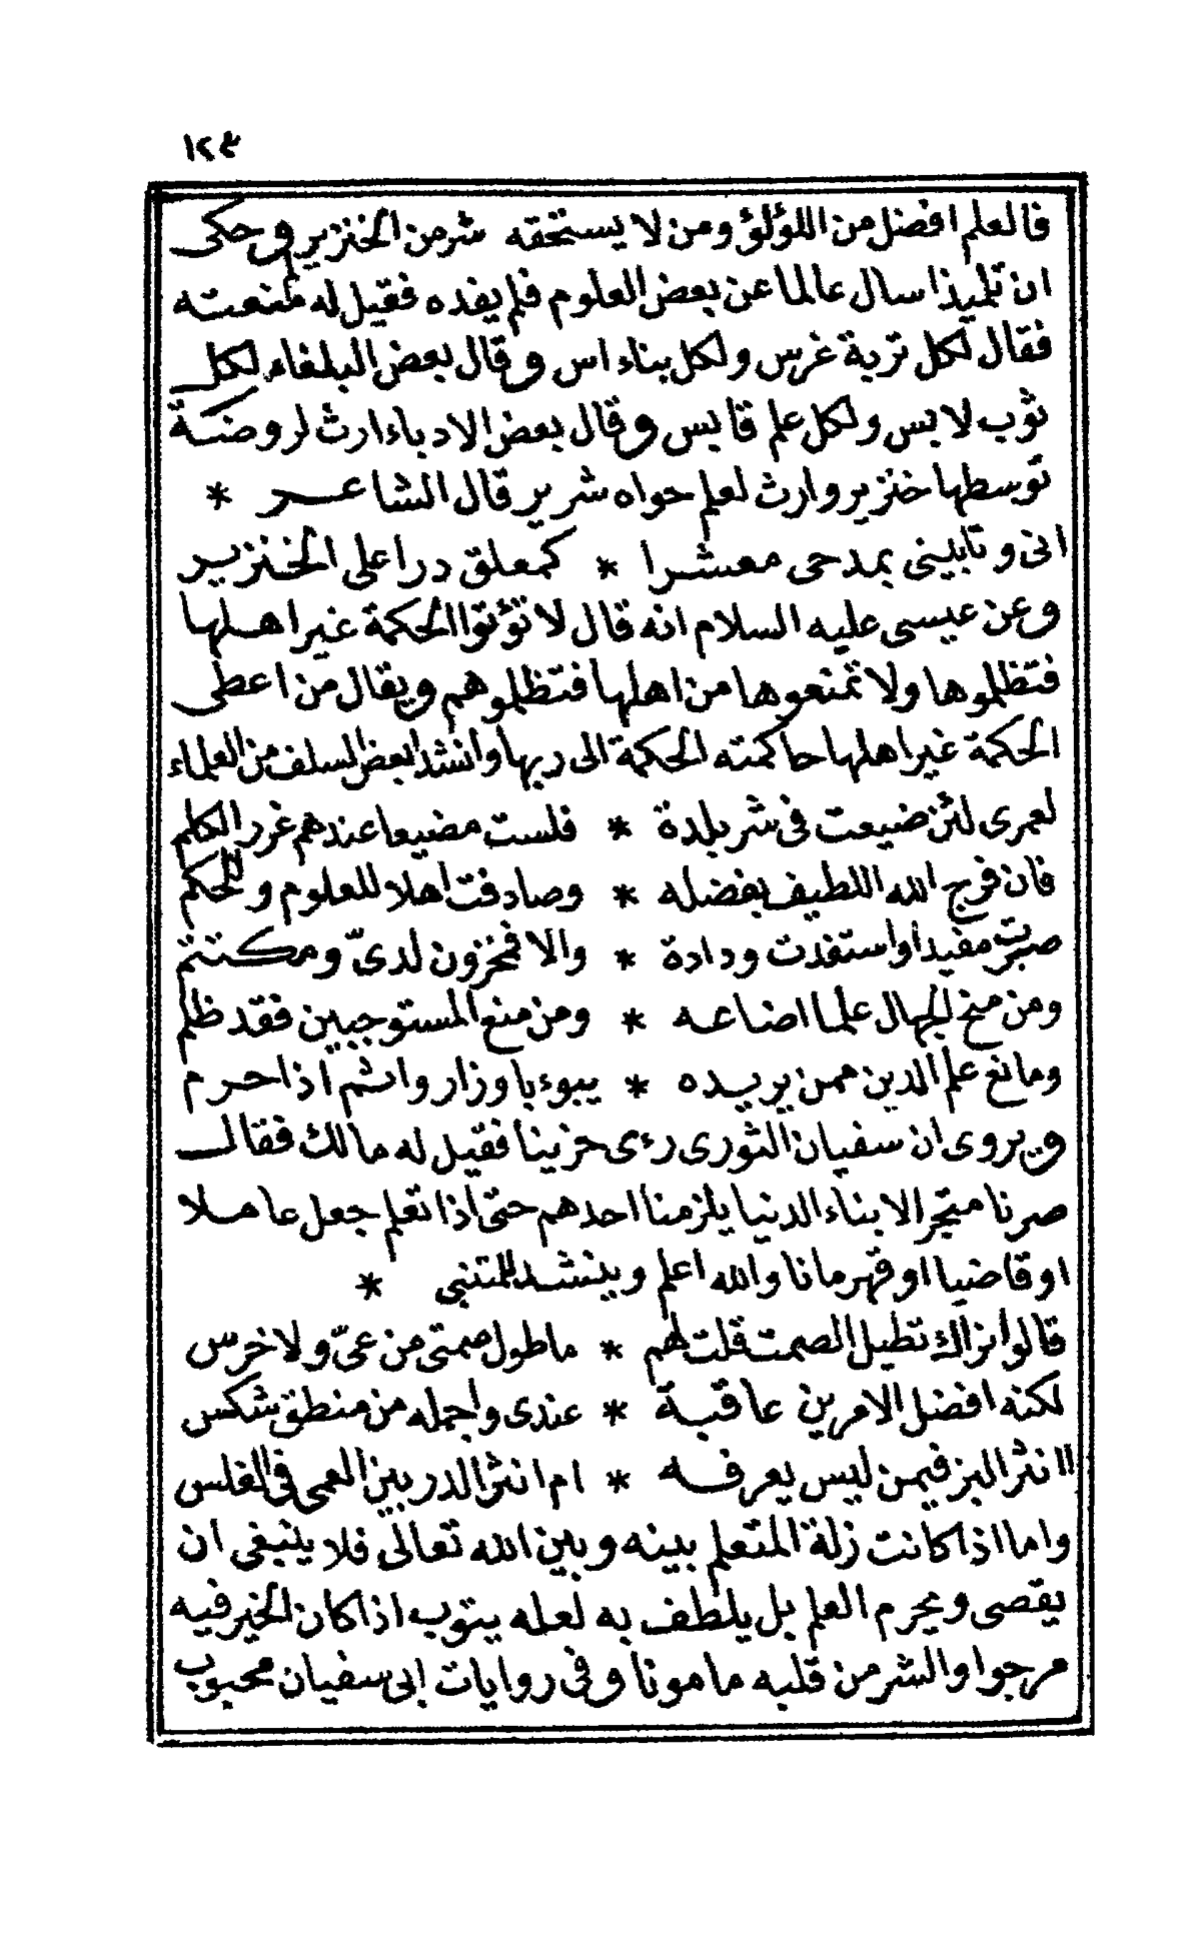 ١٢٤
فالعلم افضل من اللؤلؤ ومن لا يستحقه شر من الخنزير وحكى
ان تلميذا سال عالما عن بعض العلوم فلم يفده فقيل له لم منعته
فقال لكل تربة غرس ولكل بناء اس وقال بعض البلغاء لكل
ثوب لابس ولكل علم قابس وقال بعض الادباء ارث لروضة
توسطها خنزير وارث لعلم حواه شرير قال الشاعر *
انى وتابينى بمدحى معشرا * كمعلق درا على الخنزير
وعن عيسى عليه السلام انه قال لا تؤتوا الحكمة غير اهلها
فتظلموها ولا تمنعوها من اهلها فتظلموهم ويقال من اعطى
الحكمة غير اهلها حاكمته الحكمة الى ربها وانشد بعض السلف من العلماء
لعمرى لئن ضيعت فى شر بلدة * فلست مضيعا عندهم غرر الكلم
فان فرج الله اللطيف بفضله * وصادفت اهلا للعلوم وللحكم
صبرت مفيدا واستفدت ودادة * والا فمخزون لدىّ ومكتتم
ومن منح الجهال علما اضاعه * ومن منع المستوجبين فقد ظلم
ومانع علم الدين ممن يريده * يبوء باوزار واثم اذا حرم
ويروى ان سفيان الثورى رءى حزينا فقيل له مالك فقال
صرنا متجرا لابناء الدنيا يلزمنا احدهم حتى اذا تعلم جعل عاملا
او قاضيا او قهرمانا والله اعلم وينشد للمتنبى *
قالوا نراك تطيل الصمت قلت لهم * ما طول صمتى من عىّ ولا خرس
لكنه افضل الامرين عاقبة * عندى واجمله من منطق شكس
اانثر البز فيمن ليس يعرفه * ام انثر الدر بين العمى فى الغلس
واما اذا كانت زلة المتعلم بينه وبين الله تعالى فلا ينبغى ان
يقصى ويحرم العلم بل يلطف به لعله يتوب اذا كان الخير فيه
مرجوا والشر من قلبه مامونا وفى روايات ابى سفيان محبوب